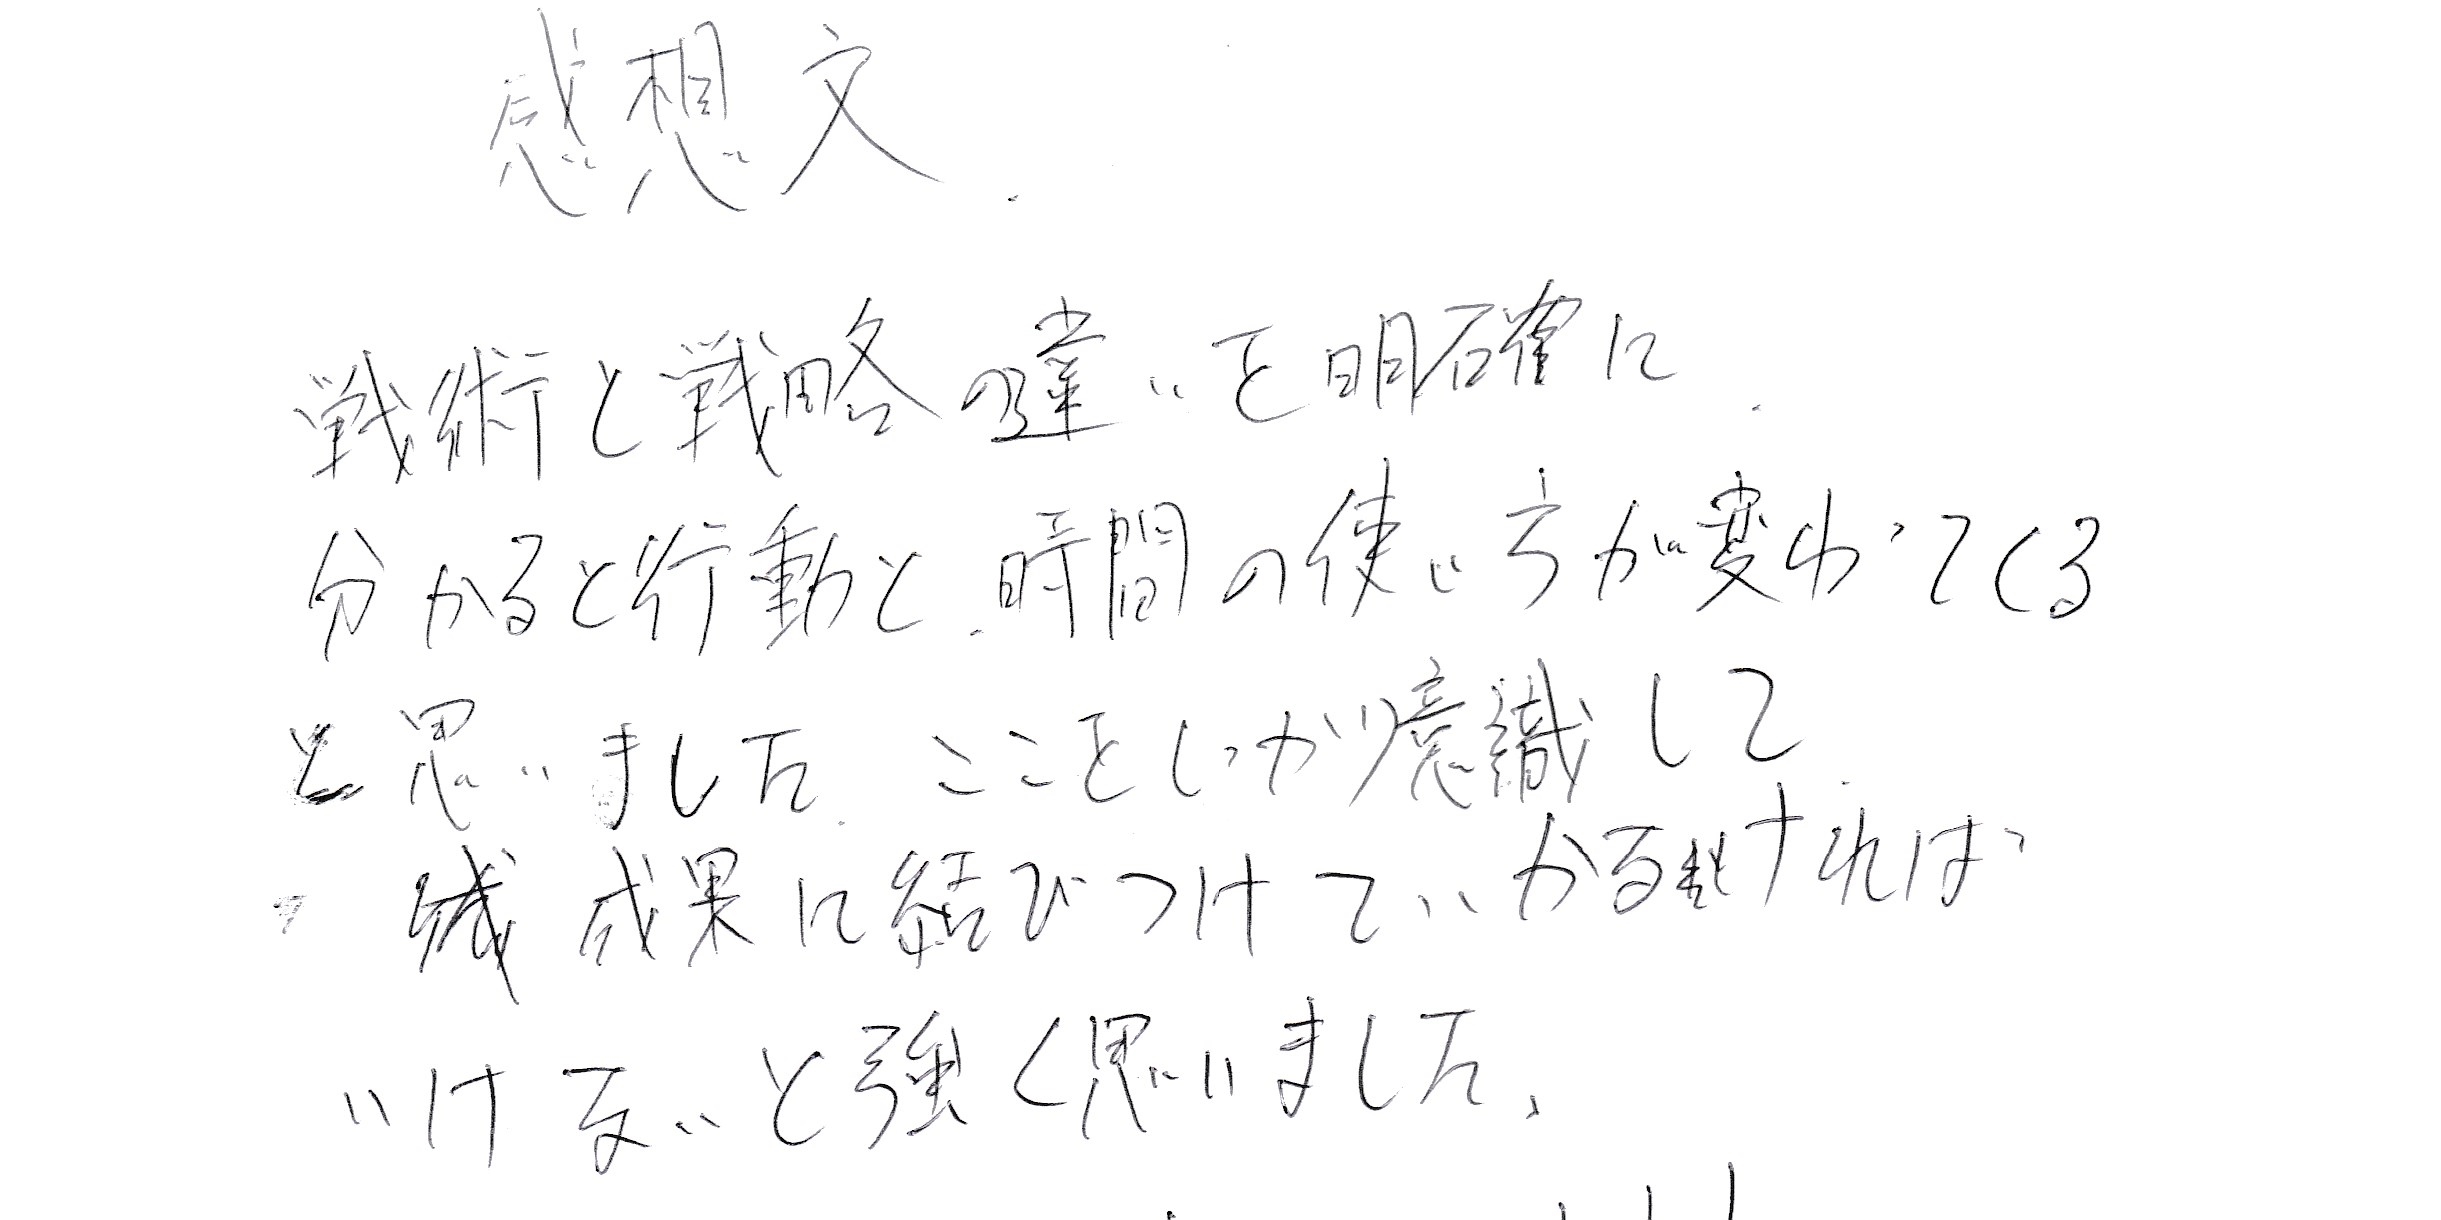 感想文
戦術と戦略の違いを明確に
分かると行動と時間の使い方が変わってくる
と思いました ここをしっかり意識して
成果に結びつけていかなければ
いけないと強く思いました、